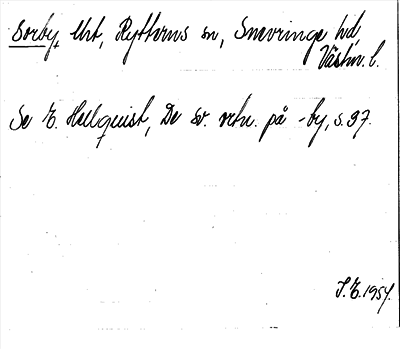 Sorby, Uht, Rytterns sn, Snevringe hd,
Västm. l.
Se E. Hellquist, De sv. ortn. på -by, s. 97.
S.E. 1954.